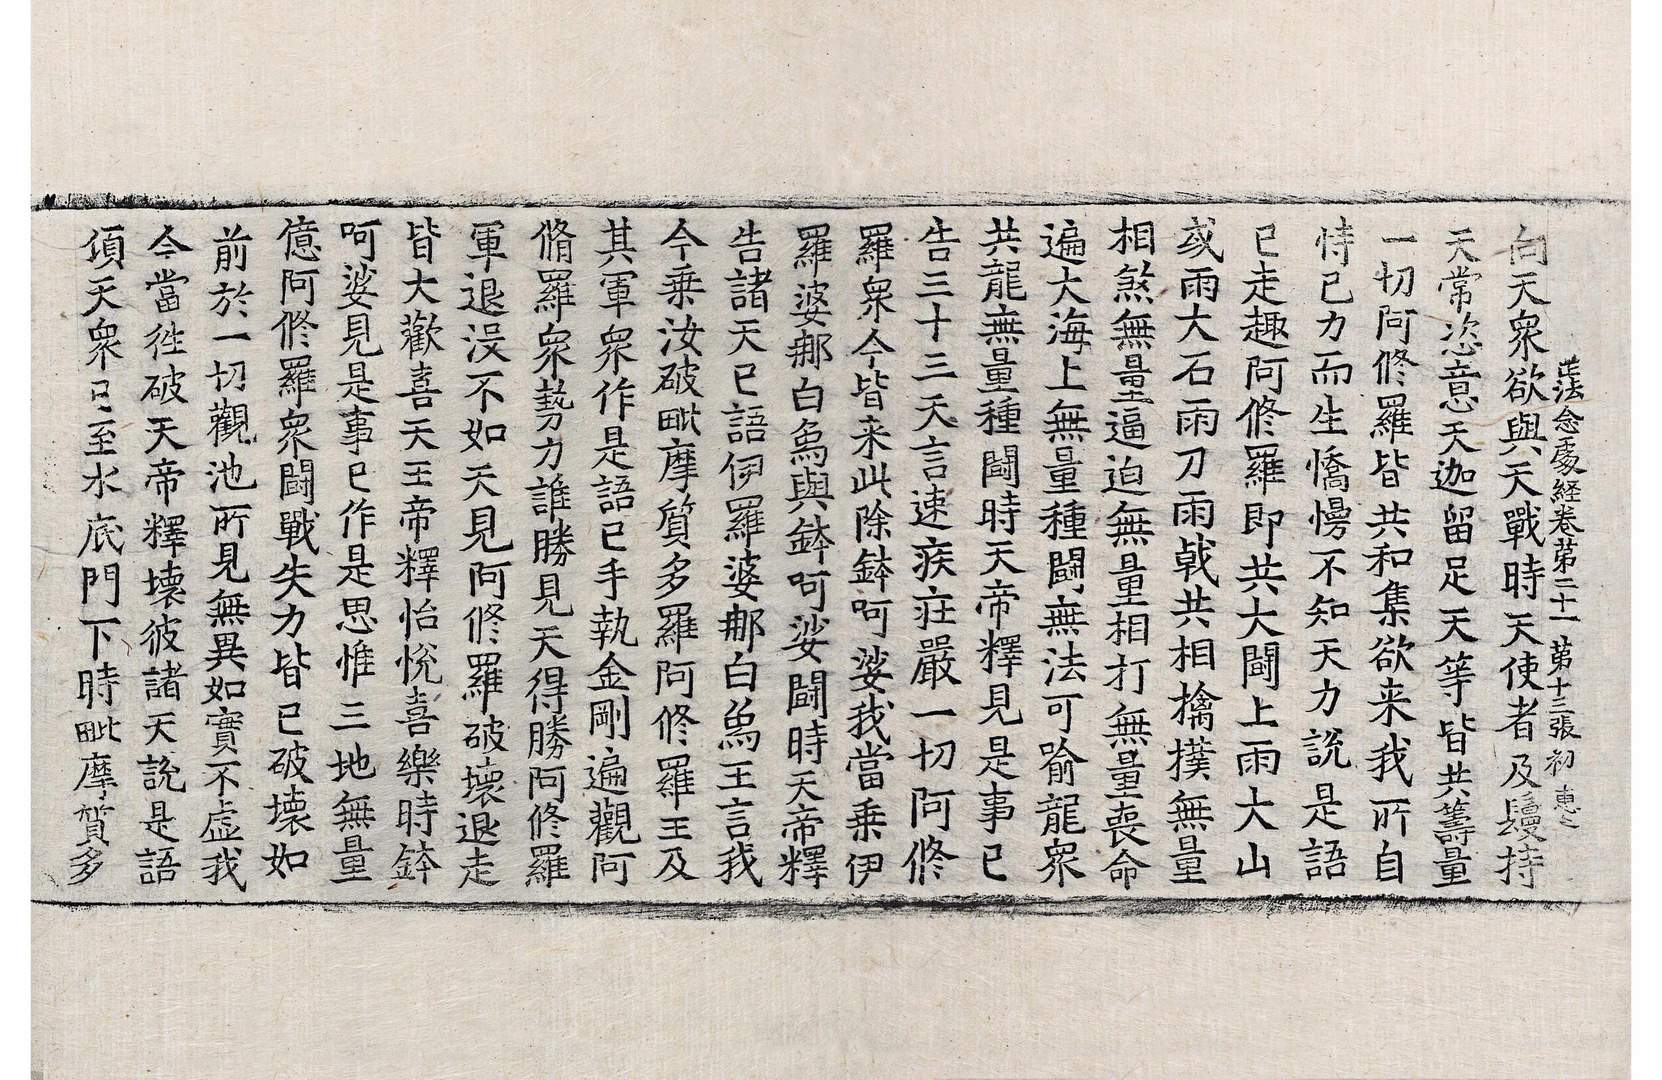 正法念處経卷第二十一 第十三張 初 惠之
向天衆欲與天戰時天使者及鬘持
天常恣意天迦留足天等皆共籌量
一切阿修羅皆共和集欲来我所自
恃己力而生憍慢不知天力說是語
已走趣阿修羅即共大闘上雨大山
或雨大石雨刀雨戟共相擒撲無量
相煞無量逼迫無量相打無量喪命
遍大海上無量種闘無法可喻龍衆
共龍無量種闘時天帝釋見是事已
告三十三天言速疾莊嚴一切阿修
羅衆今皆来此除鉢呵娑我當乗伊
羅婆那白鳥與鉢呵娑闘時天帝釋
告諸天已語伊羅婆那白鳥王言我
今乗汝破毗摩質多羅阿修羅王及
其軍衆作是語已手執金剛遍觀阿
脩羅衆勢力誰勝見天得勝阿修羅
軍退没不如天見阿修羅破壞退走
皆大歡喜天王帝釋怡悅喜樂時鉢
呵娑見是事已作是思惟三地無量
億阿修羅衆闘戰失力皆已破壞如
前於一切觀池所見無異如實不虛我
今當徃破天帝釋壞彼諸天說是語
頃天衆已至水底門下時毗摩質多